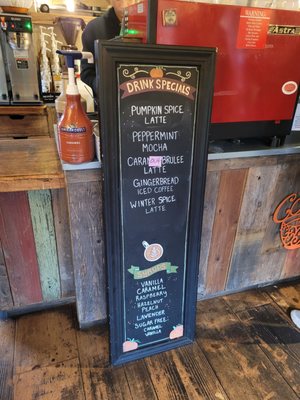 Astra
WARNING
DRINK SPECIALS
PUMPKIN SPICE
LATTE
PEPPERMINT
MOCHA
LATTE
GINGERBREAD
ICED COFFEE
WINTER SPICE
LATTE
VANILLA
CARAMEL
RASPBERRY
HAZELNUT
PEACH
LAVENDER
SUGAR FREE:
CARAMEL
VANILLA